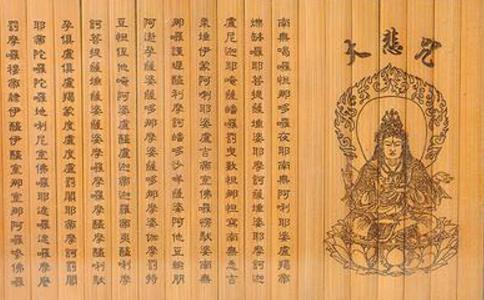 大悲咒
南無喝囉怛那哆囉夜耶南無阿唎耶婆盧羯帝
爍缽囉耶菩提薩埵婆耶摩訶薩埵婆耶摩訶迦
盧尼迦耶唵薩皤囉罰曳數怛那怛寫南無悉吉
栗埵伊蒙阿唎耶婆盧吉帝室佛囉楞馱婆南無
那囉謹墀醯利摩訶皤哆沙咩薩婆阿他豆輸朋
阿逝孕薩婆薩哆那摩婆薩哆那摩婆伽摩罰特
豆怛姪他唵阿婆盧醯盧迦帝迦羅帝夷醯唎摩
訶菩提薩埵薩婆薩婆摩囉摩囉摩醯摩醯唎馱
孕俱盧俱盧羯蒙度盧度盧罰闍耶帝摩訶罰闍
耶帝陀囉陀囉地唎尼室佛囉耶遮囉遮囉摩麼
罰摩囉穆帝隸伊醯伊醯室那室那阿囉嘇佛囉